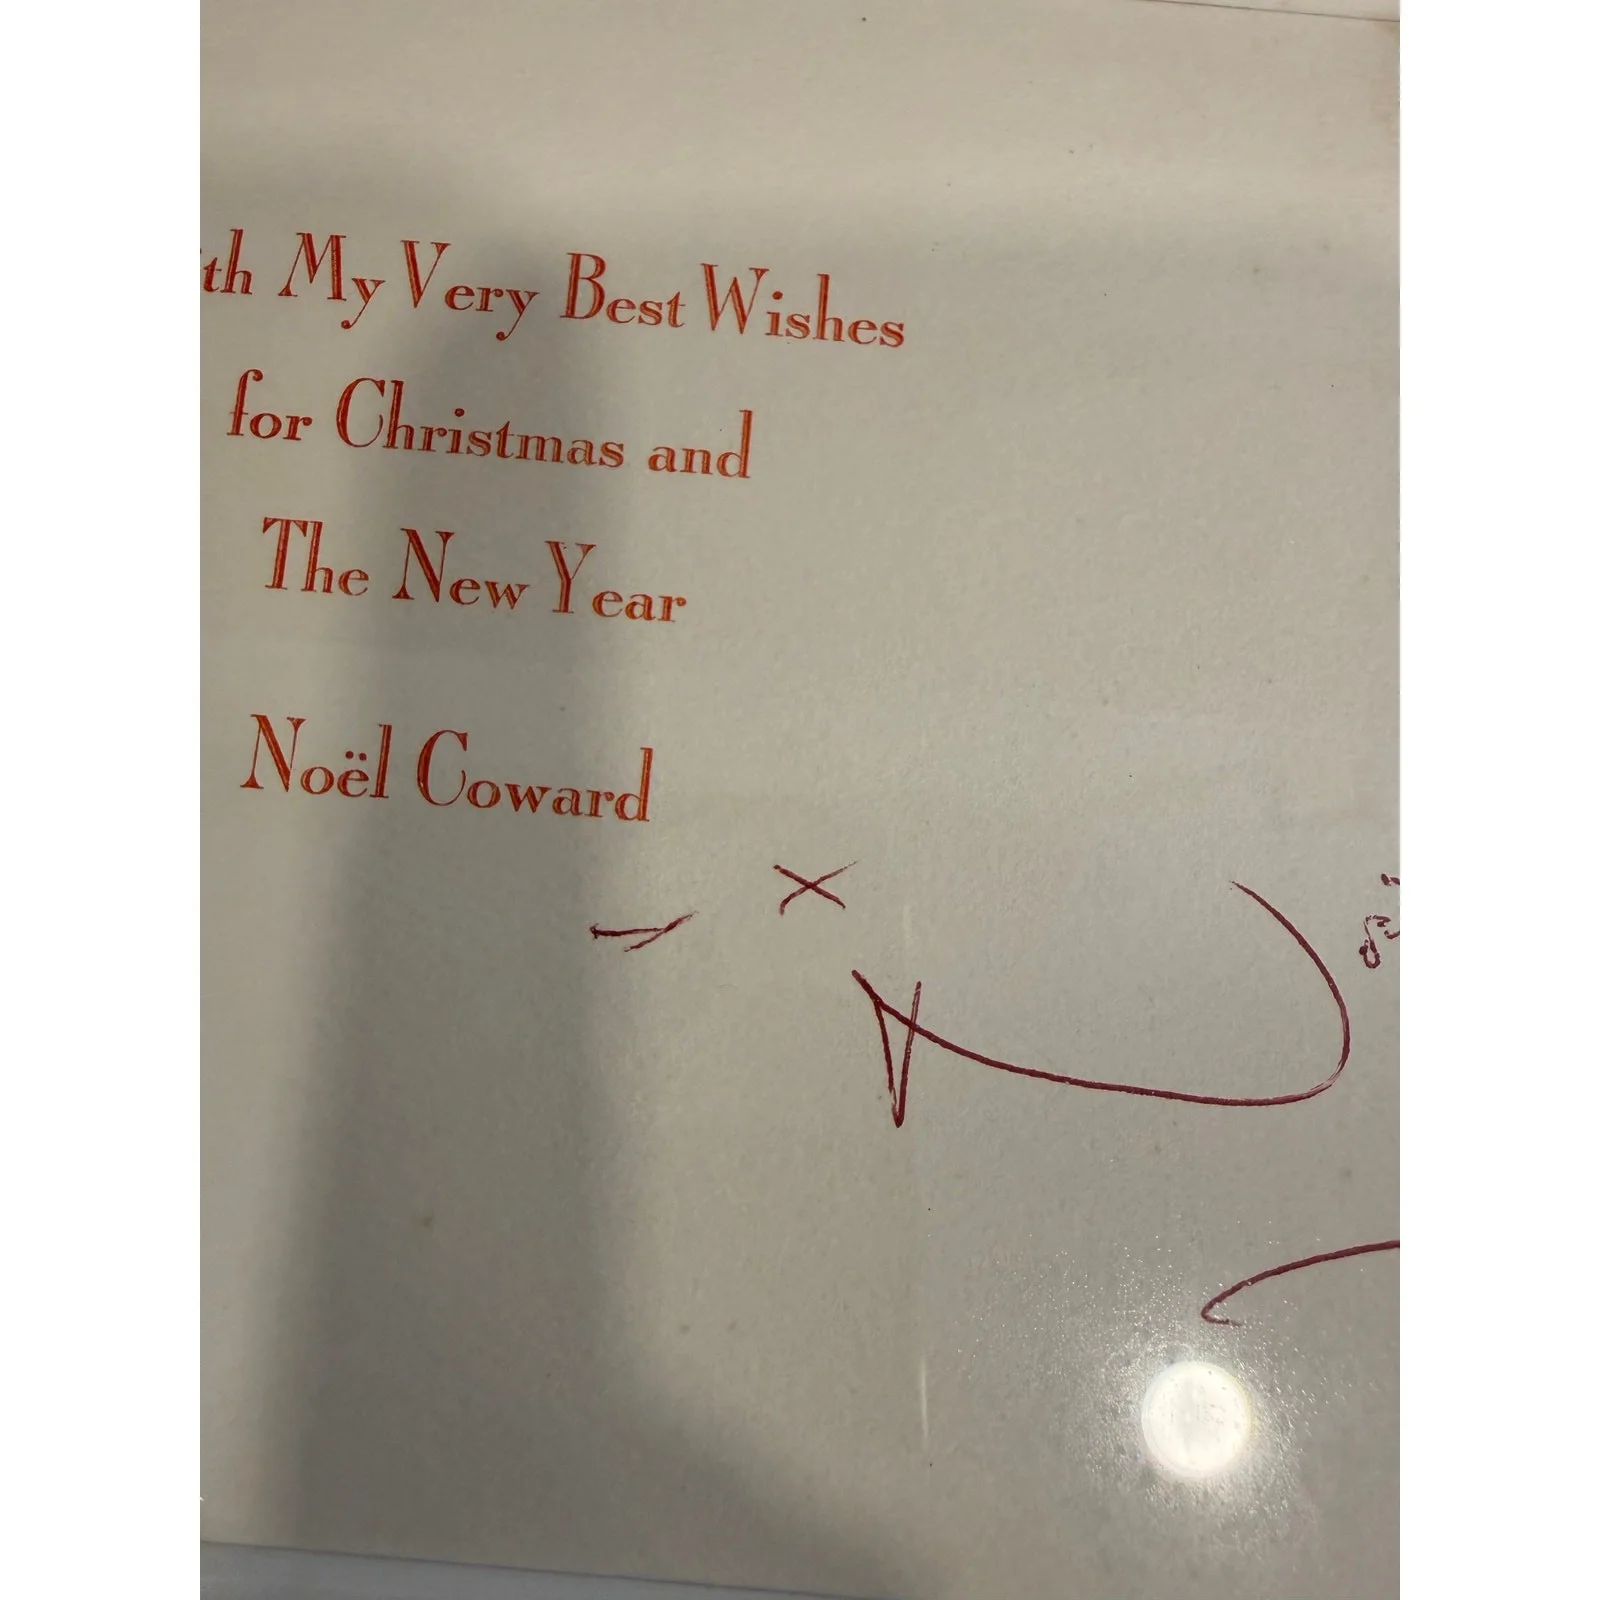 th My Very Best Wishes
for Christmas and
The New Year
Noël Coward